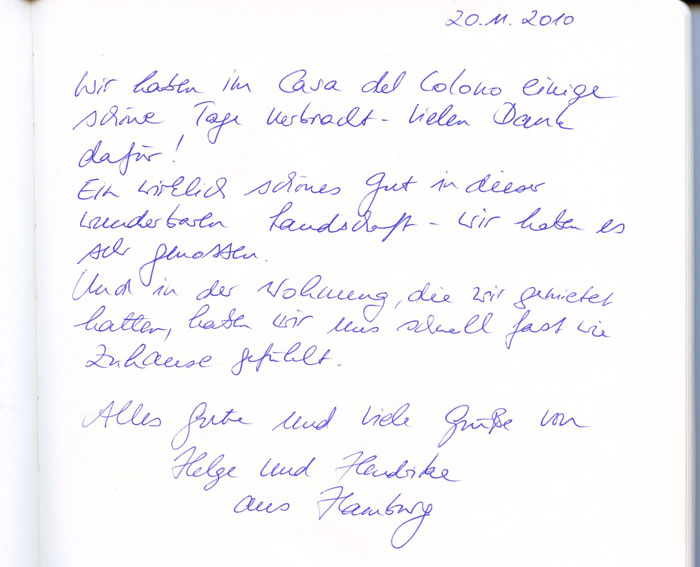 20.11.2010
Wir haben im Casa del Colono einige
schöne Tage verbracht - vielen Dank
dafür!
Ein wirklich schönes Gut in dieser
wunderbaren Landschaft - wir haben es
sehr genossen.
Und in der Wohnung, die wir gemietet
hatten, haben wir uns schnell fast wie
Zuhause gefühlt.
Alles Gute und viele Grüße von
Helge und Hendrike
aus Hamburg